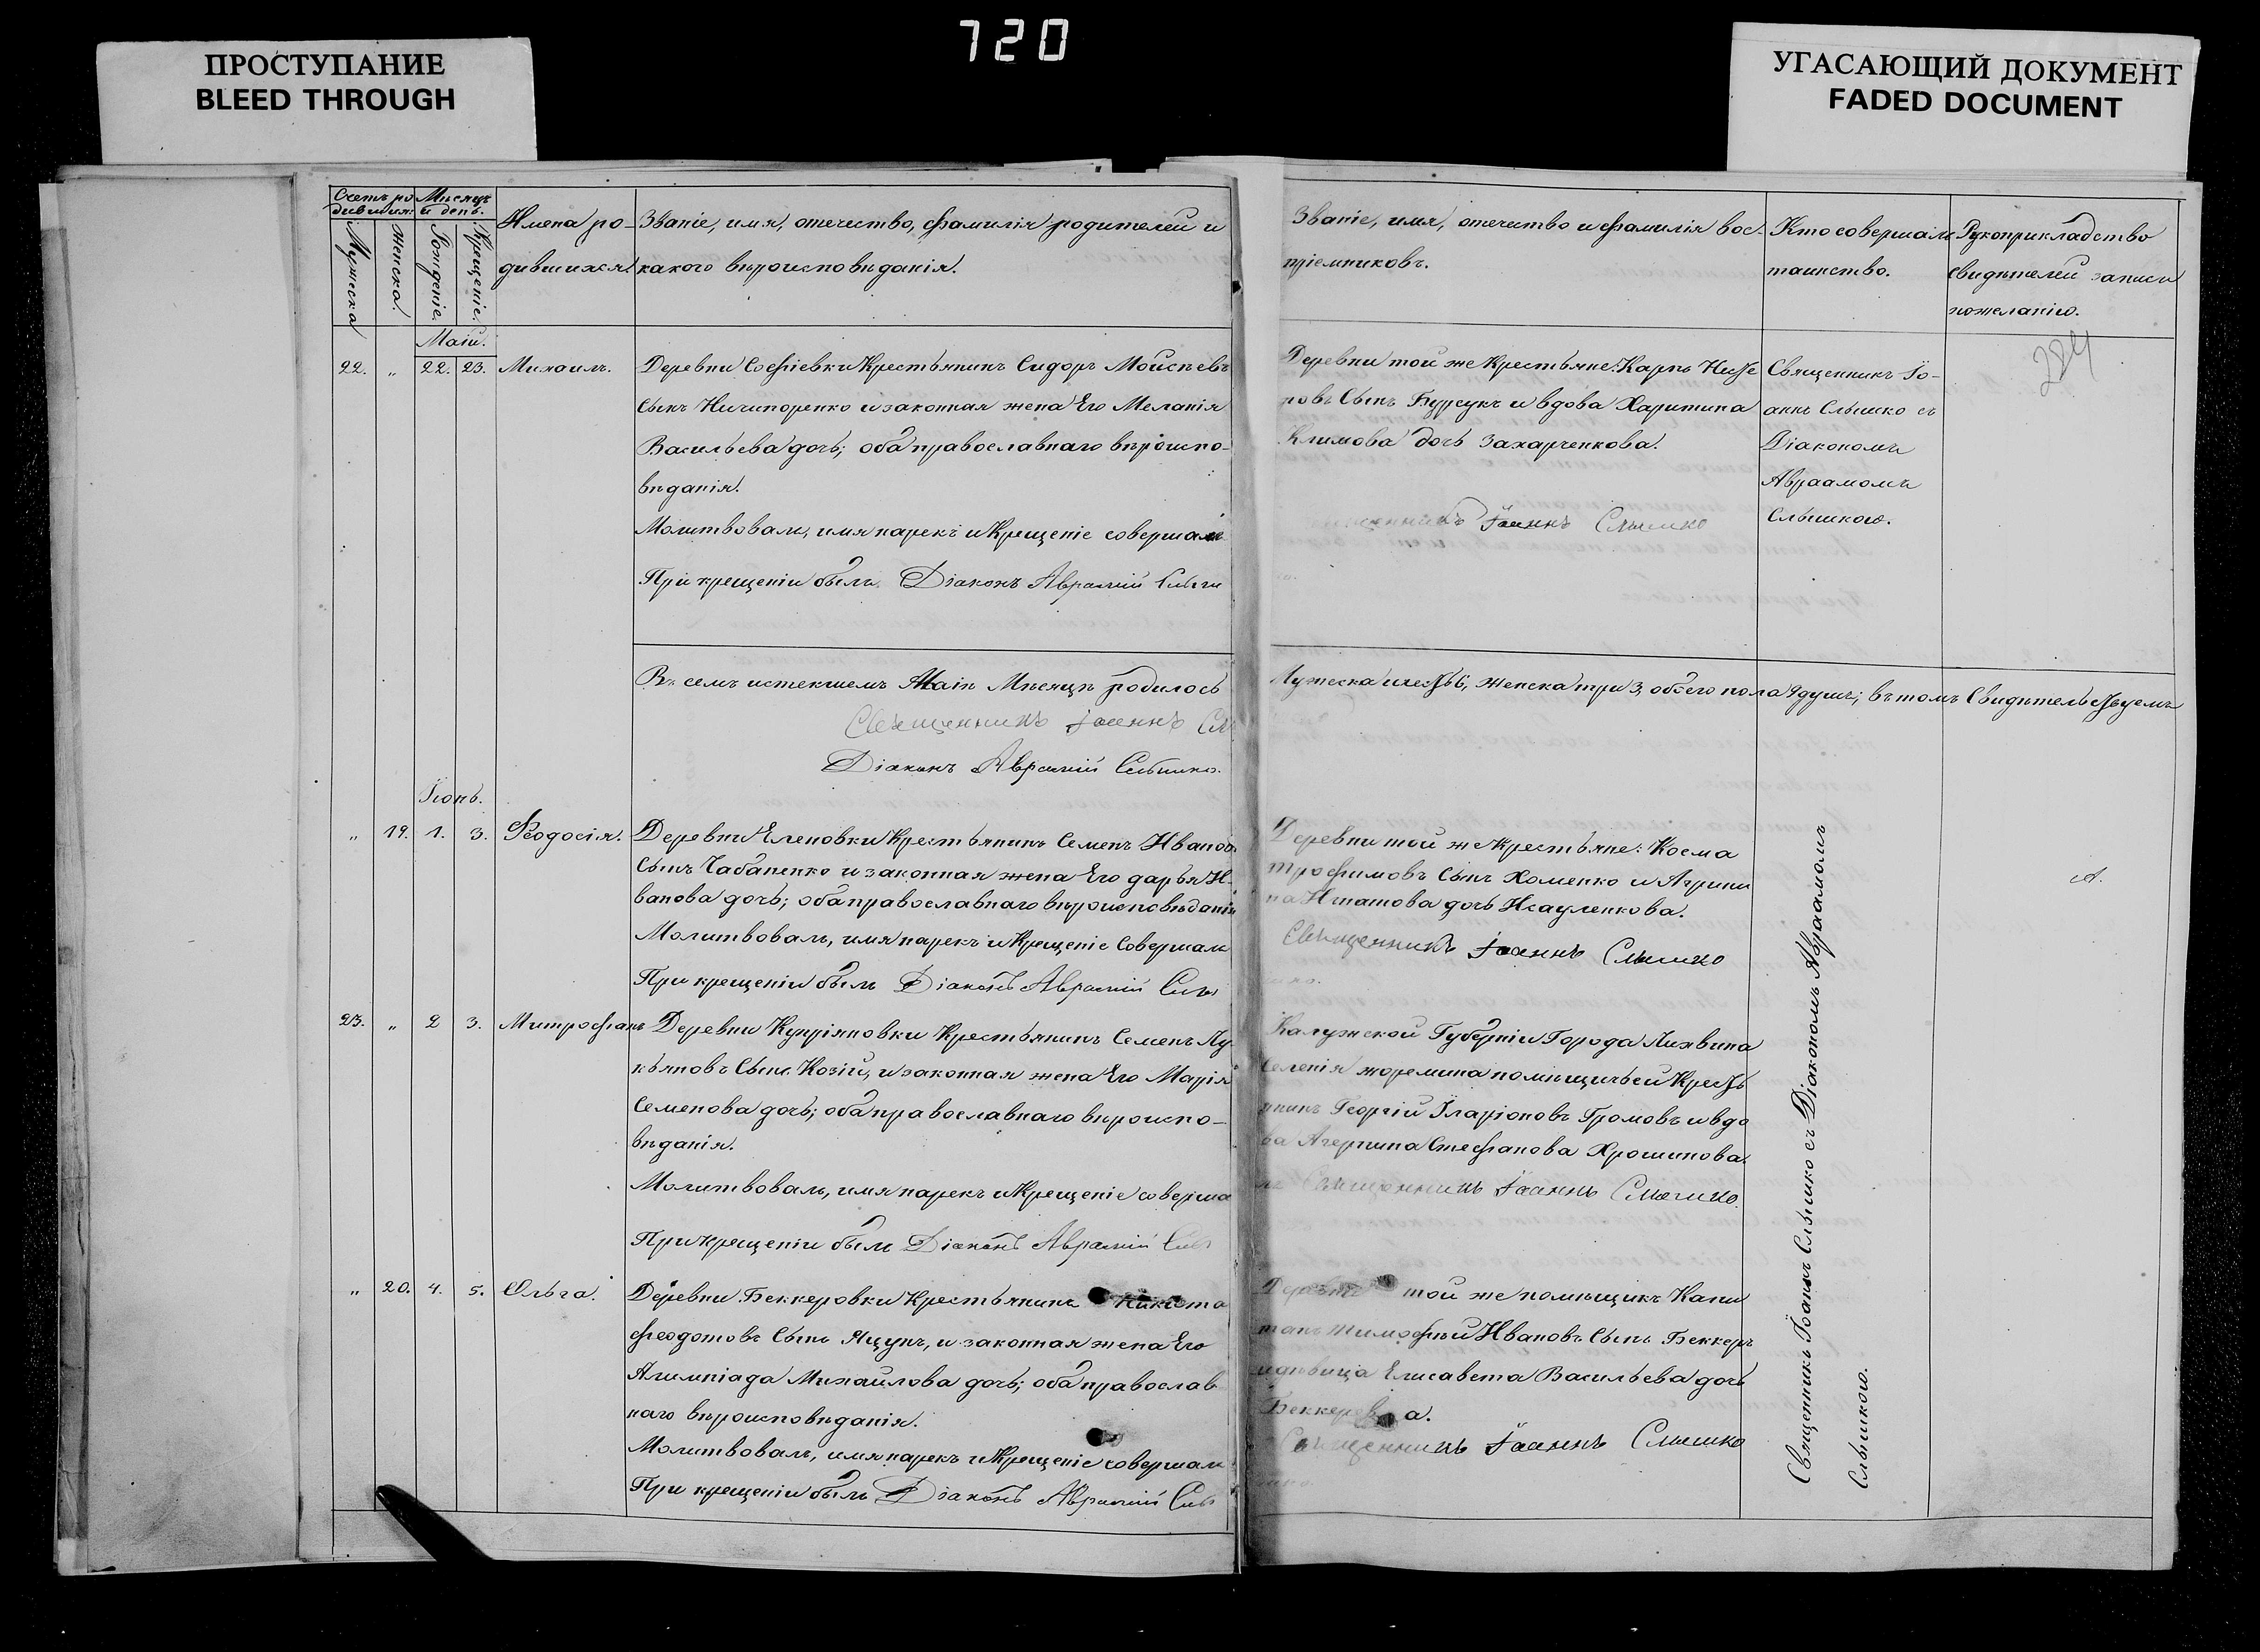 720
ПРОСТУПАНИЕ
BLEED THROUGH
УГАСАЮЩИЙ ДОКУМЕНТ
FADED DOCUMENT
Счетъ ро
дившихся:
Мѣсяцъ
и день.
Мужеска
Женска.
Рожденіе.
Крещеніе.
Имена ро-
дившихся.
Званіе, имя, отчество, фамилія родителей и
какого вѣроисповѣданія.
Званіе, имя, отчество и фамилія вос-
пріемниковъ.
Кто совершалъ
таинство.
Рукоприкладство
свидѣтелей записи
по желанію.
284
Маій.
22. „ 22. 23. Михаилъ.
Деревни Софіевки Крестьянинъ Сидоръ Мойсѣевъ
Сынъ Ничипоренко и законная жена Его Меланія
Васильева дочь; оба православнаго вѣроиспо-
вѣданія.
Молитвовалъ, имя нарекъ и Крещеніе совершалъ
При крещеніи былъ Діаконъ Аврамій
Деревни той же Крестьяне: Карпъ
Сынъ Бурсукъ и вдова Харитина
Климова дочь Захарченкова.
Іоаннъ Слышко
Священникъ Іо-
аннъ Слышко съ
Діакономъ
Авраамомъ
Слышкою.
Въ семъ истекшемъ Маіѣ Мѣсяцѣ родилось
Мужеска шесть 6, женска три 3, обоего пола 9 душъ; въ томъ Свидѣтельствуемъ
Священникъ Іоаннъ
Діаконъ Аврамій Слышко.
Іюнь.
„ 19. 1. 3. Феодосія.
Деревни Еленовки Крестьянинъ Семенъ Ивановъ
Сынъ Чабаненко и законная жена Его Дарья И-
ванова дочь; оба православнаго вѣроисповѣданія
Молитвовалъ, имя нарекъ и Крещеніе Совершалъ
При крещеніи былъ Діаконъ Аврамій
Деревни той же Крестьяне: Косма
Трофимовъ Сынъ Хоменко и Агрипи
на Игнатова дочь Исауленкова.
Священникъ Іоаннъ Слышко
А.
23. „ 2 3. Митрофанъ
Деревни Купріяновки Крестьянинъ Семенъ Лу
кьяновъ Сынъ Козій, и законная жена Его Марія
Семенова дочь; оба православнаго вѣроиспо-
вѣданія.
Молитвовалъ, имя нарекъ и Крещеніе соверша
При крещеніи былъ Діаконъ Аврамій
Калужской Губерніи Города Лихвина
Селенія помѣщичьей Кресть
янинъ Георгій Іларіоновъ Громовъ и вдо
ва Стефанова
Священникъ Іоаннъ Слышко.
„ 20. 4. 5. Ольга.
Деревни Беккеровки Крестьянинъ Никита
Феодотовъ Сынъ Яцунъ, и законная жена Его
Алимпіада Михайлова дочь; оба православ
наго вѣроисповѣданія.
Молитвовалъ, имя нарекъ и Крещеніе совершалъ
При крещеніи былъ Діаконъ Аврамій
Деревни той же помѣщикъ Капи
танъ Тимофѣй Ивановъ Сынъ Беккеръ
и дѣвица Елисавета Васильева дочь
Священникъ Іоаннъ Слышко
Священникъ Іоаннъ Слышко съ Діакономъ Авраамомъ
Слышкою.